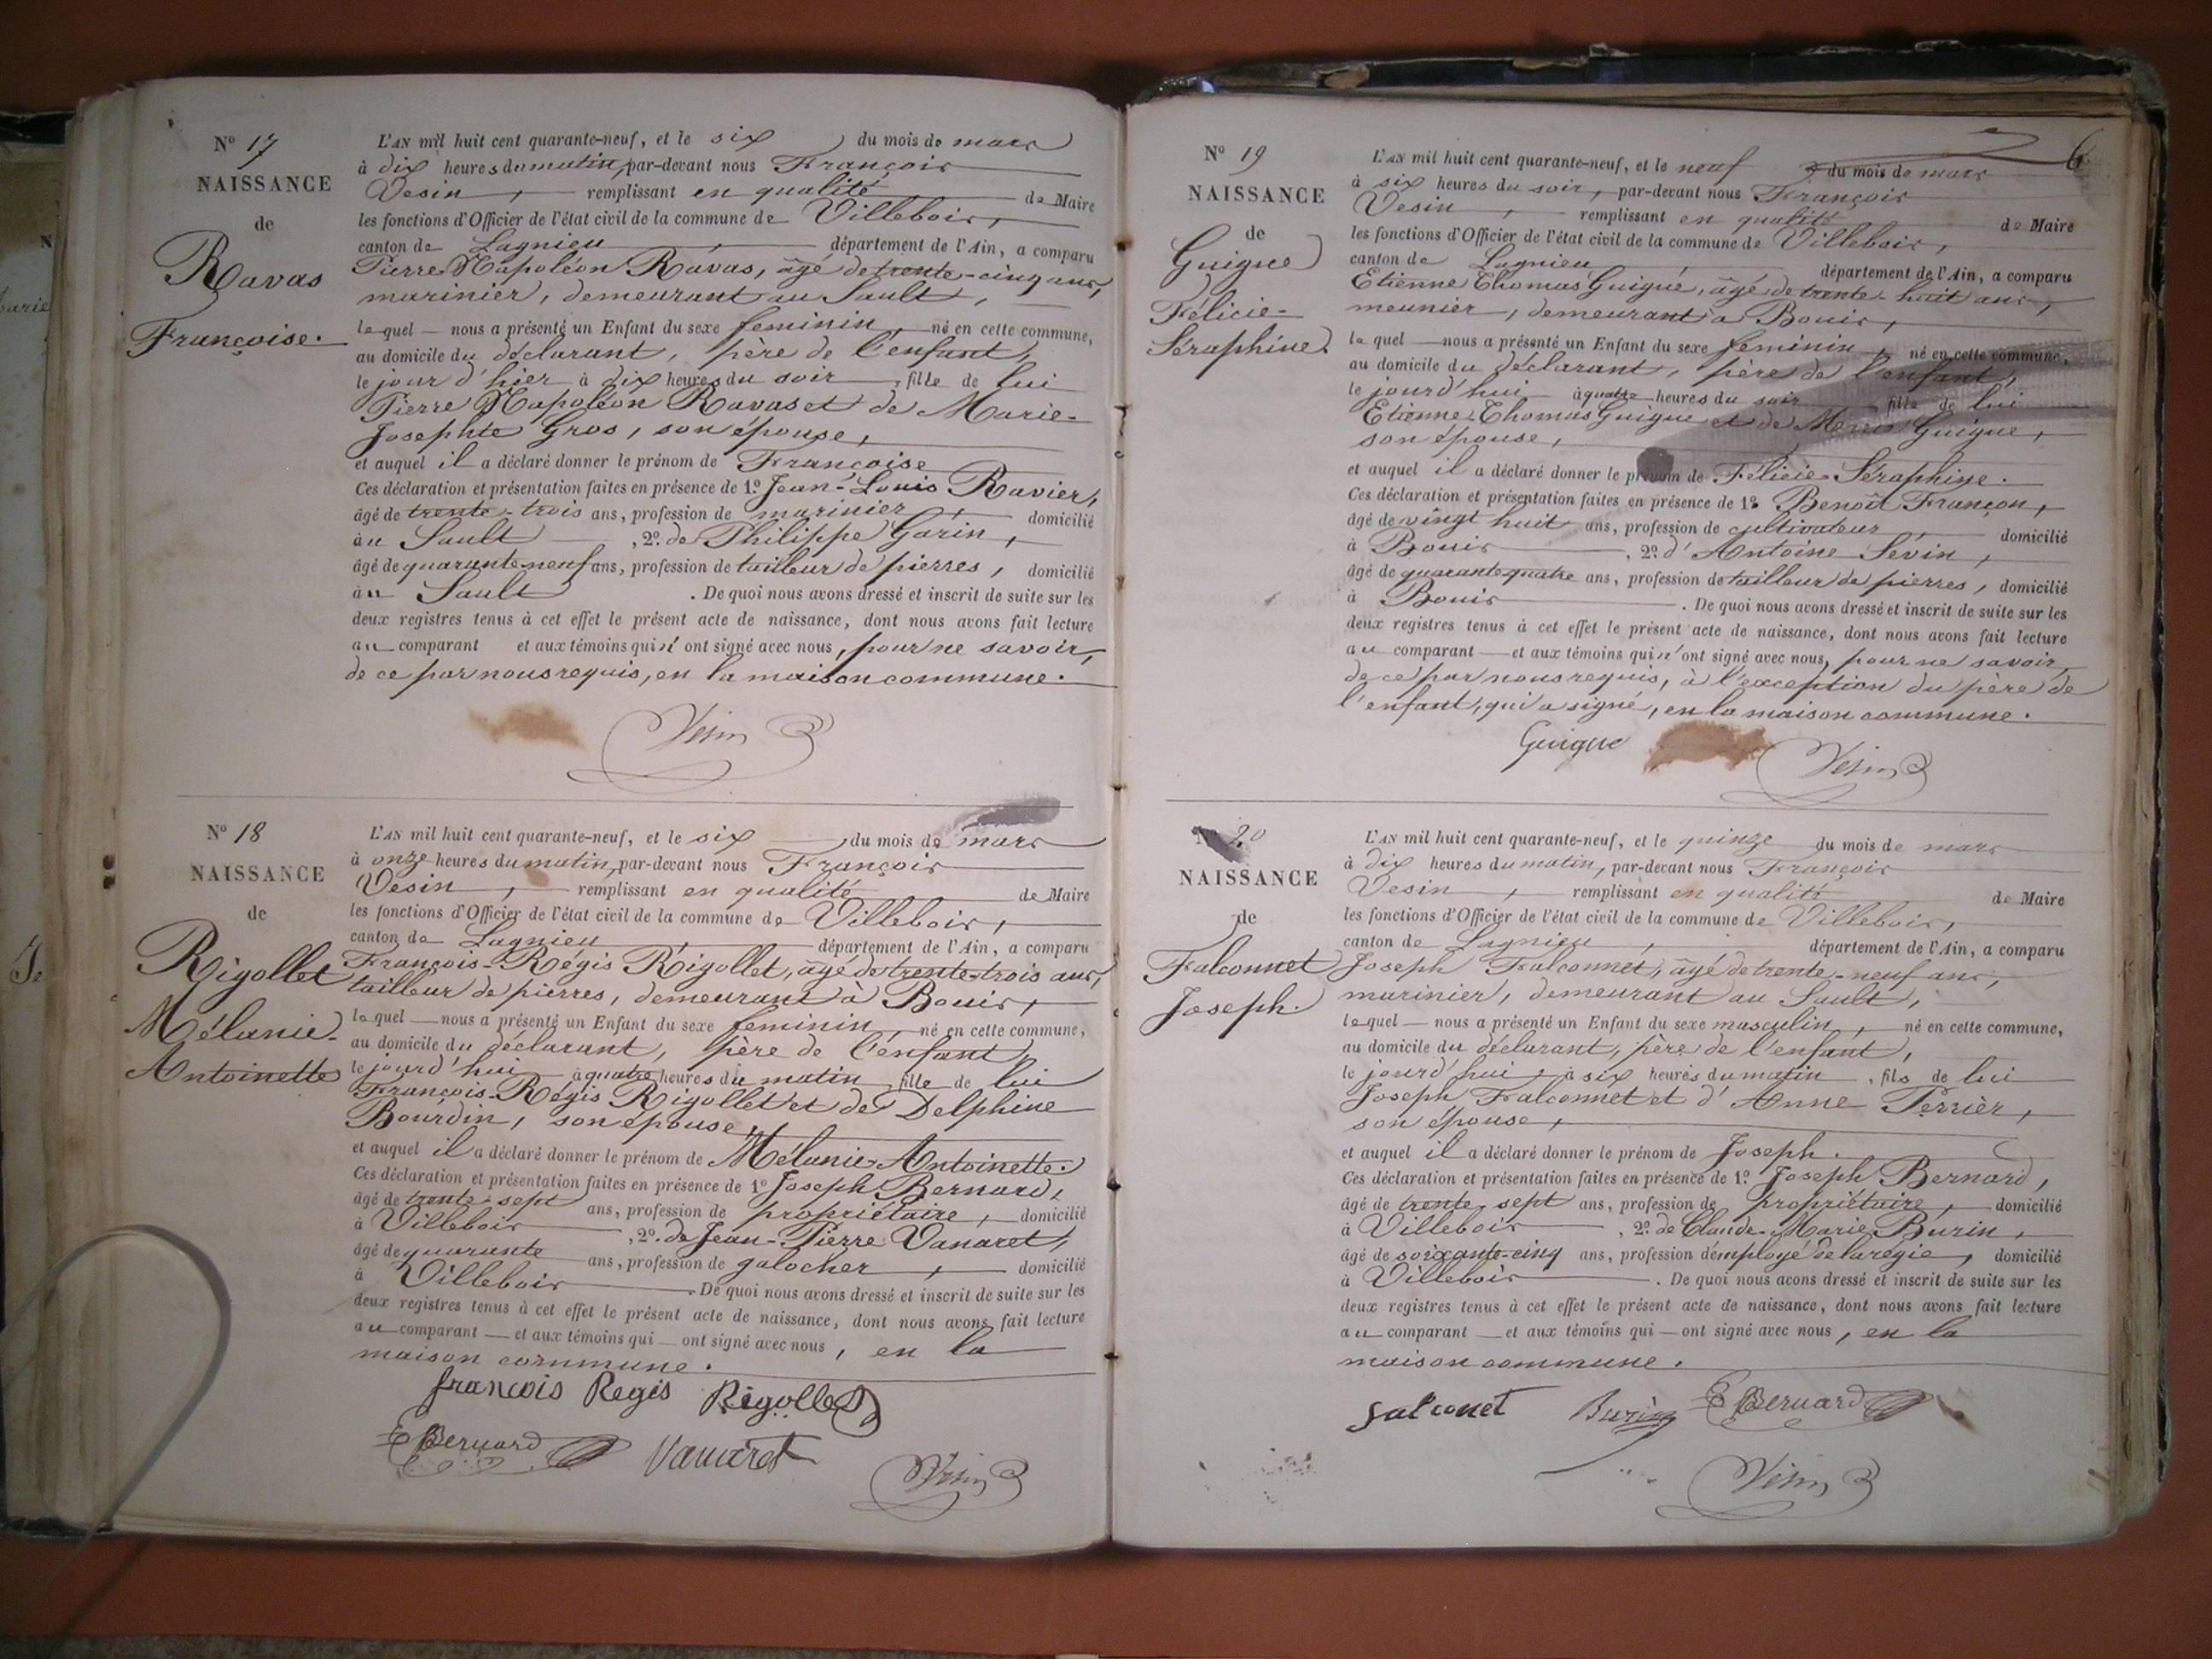 N° 17
NAISSANCE
de
Ravas
Françoise.
L'AN mil huit cent quarante-neuf, et le six du mois de mars
à dix heures du matin, par-devant nous François
Vesin, remplissant en qualité de Maire
les fonctions d'Officier de l'état civil de la commune de Villebois,
canton de Lagnieu, département de l'Ain, a comparu
Pierre Napoléon Ravas, âgé de trente-cinq ans,
marinier, demeurant au Sault,
lequel nous a présenté un Enfant du sexe feminin, né en cette commune,
au domicile du déclarant, père de l'enfant,
le jour d'hier à dix heures du soir, fille de lui
Pierre Napoléon Ravas et de Marie-
Josephte Gros, son épouse,
et auquel il a déclaré donner le prénom de Françoise
Ces déclaration et présentation faites en présence de 1° Jean-Louis Ravier,
âgé de trente-trois ans, profession de marinier, domicilié
au Sault, 2° de Philippe Garin,
âgé de quarante-neuf ans, profession de tailleur de pierres, domicilié
au Sault. De quoi nous avons dressé et inscrit de suite sur les
deux registres tenus à cet effet le présent acte de naissance, dont nous avons fait lecture
au comparant et aux témoins qui n'ont signé avec nous, pour ne savoir,
de ce par nous requis, en la maison commune.
Vesin
N° 18
NAISSANCE
de
Rigollet
Mélanie-
Antoinette
L'AN mil huit cent quarante-neuf, et le six du mois de mars
à onze heures du matin, par-devant nous François
Vesin, remplissant en qualité de Maire
les fonctions d'Officier de l'état civil de la commune de Villebois,
canton de Lagnieu, département de l'Ain, a comparu
François-Régis Rigollet, âgé de trente-trois ans,
tailleur de pierres, demeurant à Bouis,
lequel nous a présenté un Enfant du sexe feminin, né en cette commune,
au domicile du déclarant, père de l'enfant,
le jourd'hui à quatre heures du matin, fille de lui
François-Régis Rigollet et de Delphine
Bourdin, son épouse,
et auquel il a déclaré donner le prénom de Mélanie-Antoinette.
Ces déclaration et présentation faites en présence de 1° Joseph Bernard,
âgé de trente-sept ans, profession de propriétaire, domicilié
à Villebois, 2° de Jean-Pierre Vanaret,
âgé de quarante ans, profession de galocher, domicilié
à Villebois. De quoi nous avons dressé et inscrit de suite sur les
deux registres tenus à cet effet le présent acte de naissance, dont nous avons fait lecture
au comparant et aux témoins qui ont signé avec nous, en la
maison commune.
francois Regis Rigollet
Bernard Vanaret
Vesin
6
N° 19
NAISSANCE
de
Guigue
Félicie-
Séraphine.
L'AN mil huit cent quarante-neuf, et le neuf du mois de mars
à six heures du soir, par-devant nous François
Vesin, remplissant en qualité de Maire
les fonctions d'Officier de l'état civil de la commune de Villebois,
canton de Lagnieu, département de l'Ain, a comparu
Etienne Thomas Guigue, âgé de trente-huit ans,
meunier, demeurant à Bouis,
lequel nous a présenté un Enfant du sexe feminin, né en cette commune,
au domicile du déclarant, père de l'enfant,
le jourd'hui à quatre heures du soir, fille de lui
Etienne Thomas Guigue et de Guigue,
son épouse,
et auquel il a déclaré donner le prénom de Félicie-Séraphine.
Ces déclaration et présentation faites en présence de 1° Benoît Françon,
âgé de vingt huit ans, profession de cultivateur, domicilié
à Bouis, 2° d'Antoine Sevin,
âgé de quarante quatre ans, profession de tailleur de pierres, domicilié
à Bouis. De quoi nous avons dressé et inscrit de suite sur les
deux registres tenus à cet effet le présent acte de naissance, dont nous avons fait lecture
au comparant et aux témoins qui n'ont signé avec nous, pour ne savoir,
de ce par nous requis, à l'exception du père de
l'enfant, qui a signé, en la maison commune.
Guigue Vesin
N° 20
NAISSANCE
de
Falconnet
Joseph.
L'AN mil huit cent quarante-neuf, et le quinze du mois de mars
à dix heures du matin, par-devant nous François
Vesin, remplissant en qualité de Maire
les fonctions d'Officier de l'état civil de la commune de Villebois,
canton de Lagnieu, département de l'Ain, a comparu
Joseph Falconnet, âgé de trente-neuf ans,
marinier, demeurant au Sault,
lequel nous a présenté un Enfant du sexe masculin, né en cette commune,
au domicile du déclarant, père de l'enfant,
le jourd'hui, à six heures du matin, fils de lui
Joseph Falconnet et d'Anne Perrier,
son épouse,
et auquel il a déclaré donner le prénom de Joseph.
Ces déclaration et présentation faites en présence de 1° Joseph Bernard,
âgé de trente-sept ans, profession de propriétaire, domicilié
à Villebois, 2° de Claude-Marie Burin,
âgé de soixante-cinq ans, profession d'employé de la régie, domicilié
à Villebois. De quoi nous avons dressé et inscrit de suite sur les
deux registres tenus à cet effet le présent acte de naissance, dont nous avons fait lecture
au comparant et aux témoins qui ont signé avec nous, en la
maison commune.
falconet Burin Bernard
Vesin